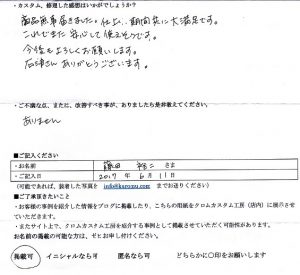 ・カスタム、修理した感想はいかがでしょうか？
商品無事届きました。仕上、期間共に大満足です。
これでまた安心して使えそうです。
今後もよろしくお願いします。
ありがとうございます。
・ご不満な点、または、改善すべき事が、ありましたら是非教えてください。
ありません
■ご記入ください
・お名前 藤田 さま
・ご記入日 2017 年 6 月 11 日
(可能であれば、装着した写真を info@kuromu.com までお送りください)
■ご了承頂きたいこと
・お客様の事例を紹介した情報をブログに掲載したり、こちらの用紙をクロムカスタム工房（店内）に展示させていただきます。
・またサイト上で、クロムカスタム工房を紹介する事例として掲載させていただく可能性があります。
お名前の掲載の可能な方は、ぜひお申し付けください。
掲載可 イニシャルなら可 匿名なら可 どちらかに〇印をお願いします